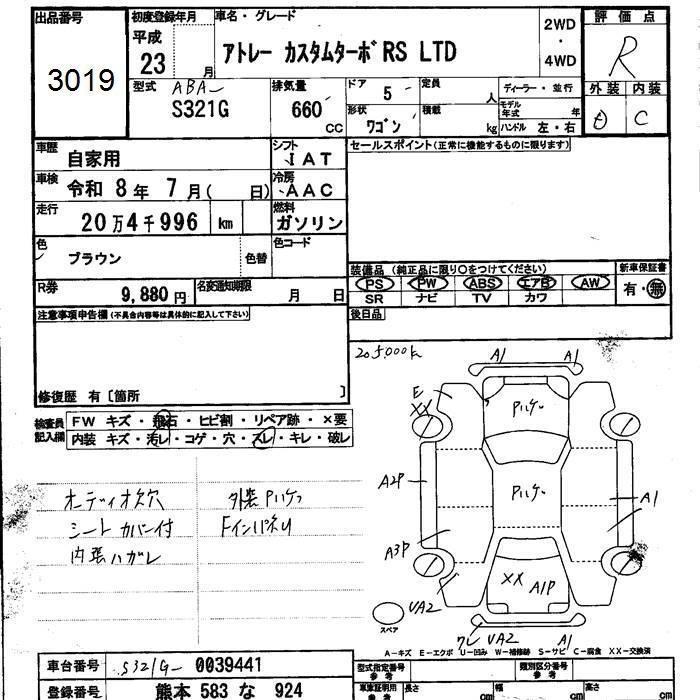 出品番号 初度登録年月 車名・グレード 評価点
3019 平成 23 月 アトレー カスタムターボRS LTD 2WD ・ 4WD R
型式 ABA- S321G 排気量 660 cc ドア 5 定員 人 ディーラー・並行 外装 内装
形状 ワゴン 積載 kg モデル年式 年 ハンドル 左・右 C
車歴 自家用 シフト IAT セールスポイント(正常に機能するものに限ります)
車検 令和 8年 7月( 日) 冷房 AAC
走行 20万4千996 km 燃料 ガソリン
色 ブラウン 色替 色コード
装備品 (純正品に限り○をつけてください) 新車保証書
PS PW ABS エアB AW 有・無
SR ナビ TV カワ
R券 9,880円 名変通知期限 月 日
後日品
注意事項申告欄(不具合内容等は具体的に記入して下さい)
205,000k
修復歴 有〔箇所 〕
検査員記入欄 FW キズ・飛石・ヒビ割・リペア跡・×要
内装 キズ・汚レ・コゲ・穴・スレ・キレ・破レ
A1 A1
E
XX
A2P
A1
A3P
XX A1P
UA2
UA2 A1
スペア
オーディオ欠穴
シートカバー付
内張ハガレ
A-キズ E-エクボ U-凹み W-補修跡 S-サビ C-腐食 XX-交換済
車台番号 S321G- 0039441 型式指定番号 類別区分番号
登録番号 熊本 583 な 924 車庫証明用参考 長さ cm 幅 cm 高さ cm